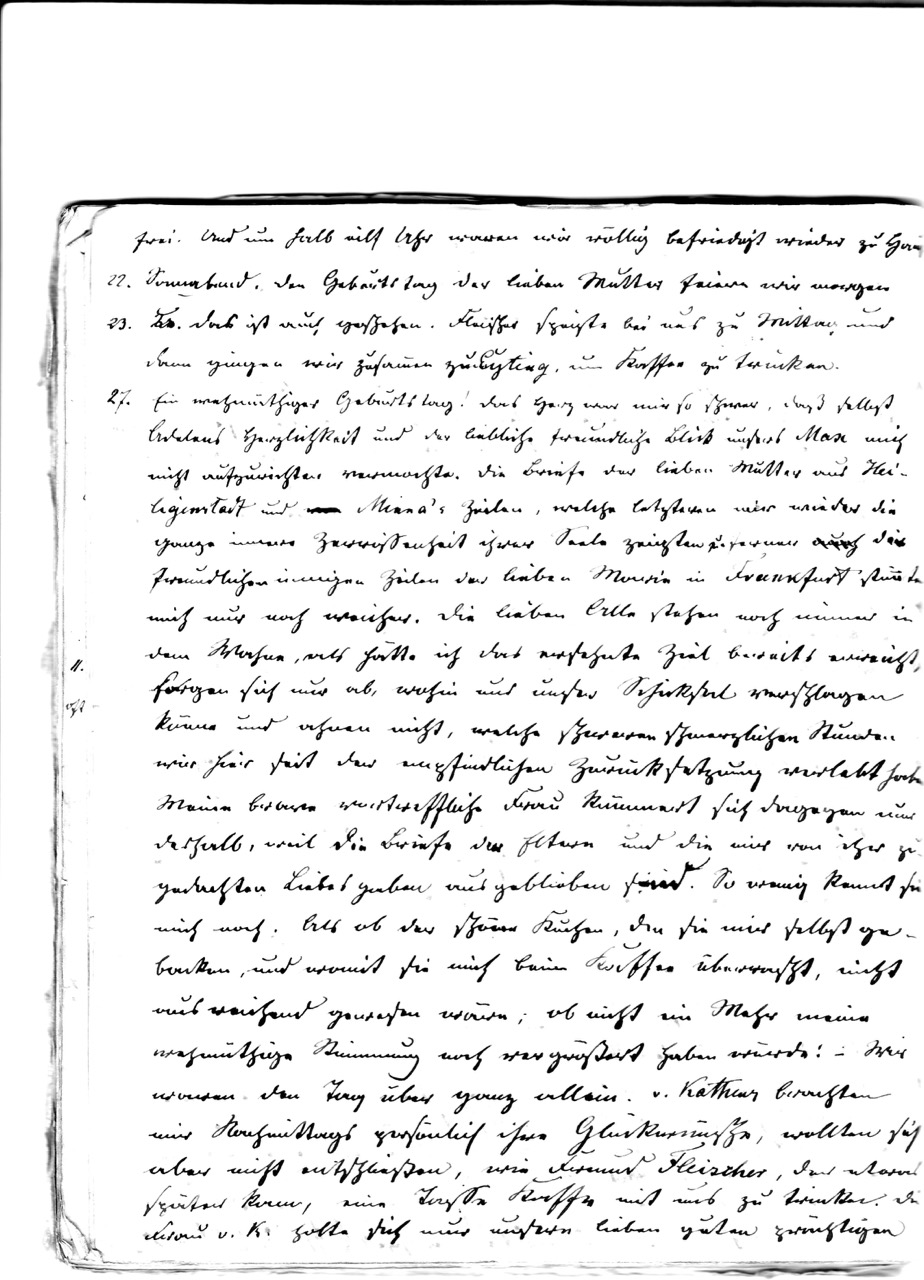 frei. Und um halb eilf Uhr waren wir völlig befriedigt wieder zu Hau
22. Sonnabend. Den Geburtstag der lieben Mutter feiern wir morgen
23. das ist auch geschehen. Fleischer speiste bei uns zu Mittag und
dann gingen wir zusammen zu um Kaffee zu trinken.
27. Ein wehmüthiger Geburtstag! Das Herz war mir so schwer, daß selbst
Adelens Herzlichkeit und der liebliche freundliche Blick unsers Max mich
nicht aufzurichten vermochte. Die Briefe der lieben Mutter aus Hei-
ligenstadt und Minna's Zeilen, welche letzteren mir wieder die
ganze innere Zerrissenheit ihrer Seele zeigten u. ferner die
freundlichen innigen Zeilen der lieben Marie in Frankfurt stimmte
mich nur noch weicher. Die lieben Alle stehen noch immer in
dem Wahne, als hätte ich das ersehnte Ziel bereits erreicht,
11.
sorgen sich nur ab, wohin uns unser Schicksal verschlagen
könne und ahnen nicht, welche schweren schmerzlichen Stunden
wir hier seit der empfindlichen Zurücksetzung verlebt habe
Meine brave vortreffliche Frau kümmert sich dagegen nur
deshalb, weil die Briefe der Eltern und die mir von ihr zu-
gedachten Liebesgaben ausgeblieben sind. So wenig kennt sie
mich noch. Als ob der schöne Kuchen, den sie mir selbst ge-
backen, und womit sie mich beim Kaffee überrascht, nicht
ausreichend gewesen wäre; ob nicht ein Mehr meine
wehmüthige Stimmung noch vergrößert haben würde! – Wir
waren den Tag über ganz allein. v. Kathens brachten
mir Nachmittags persönlich ihre Glückwünsche, wollten sich
aber nicht entschließen, wie Freund Fleischer, der etwas
später kam, eine Tasse Kaffee mit uns zu trinken. Die
Frau v. K. holte sich nur unsern lieben guten prächtigen